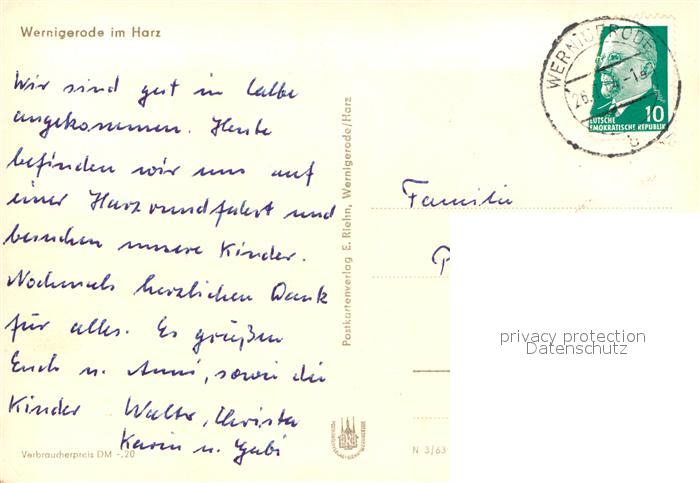 Wernigerode im Harz
Wir sind gut in Calbe
angekommen. Heute
befinden wir uns auf
einer Harzrundfahrt und
besuchen unsere Kinder.
Nochmals herzlichen Dank
für alles. Es grüßen
Euch u. Anni, sowie die
Kinder Walter, Christa
Karin u. Gabi
Verbraucherpreis DM -,20
Postkartenverlag E. Riehn, Wernigerode/Harz
WERNIGERODE
26.
-14
b
10
DEUTSCHE
DEMOKRATISCHE REPUBLIK
Familie
P
privacy protection
Datenschutz
N 3/63